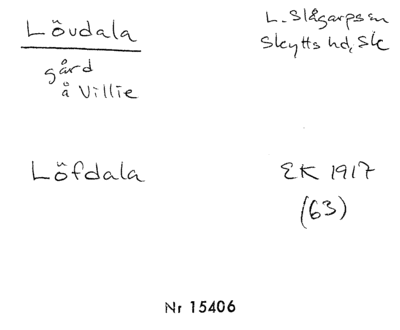 Lövdala
L. Slågarps sn
Skytts hd, Sk
gård
å Villie
Löfdala
EK 1917
(63)
Nr 15406